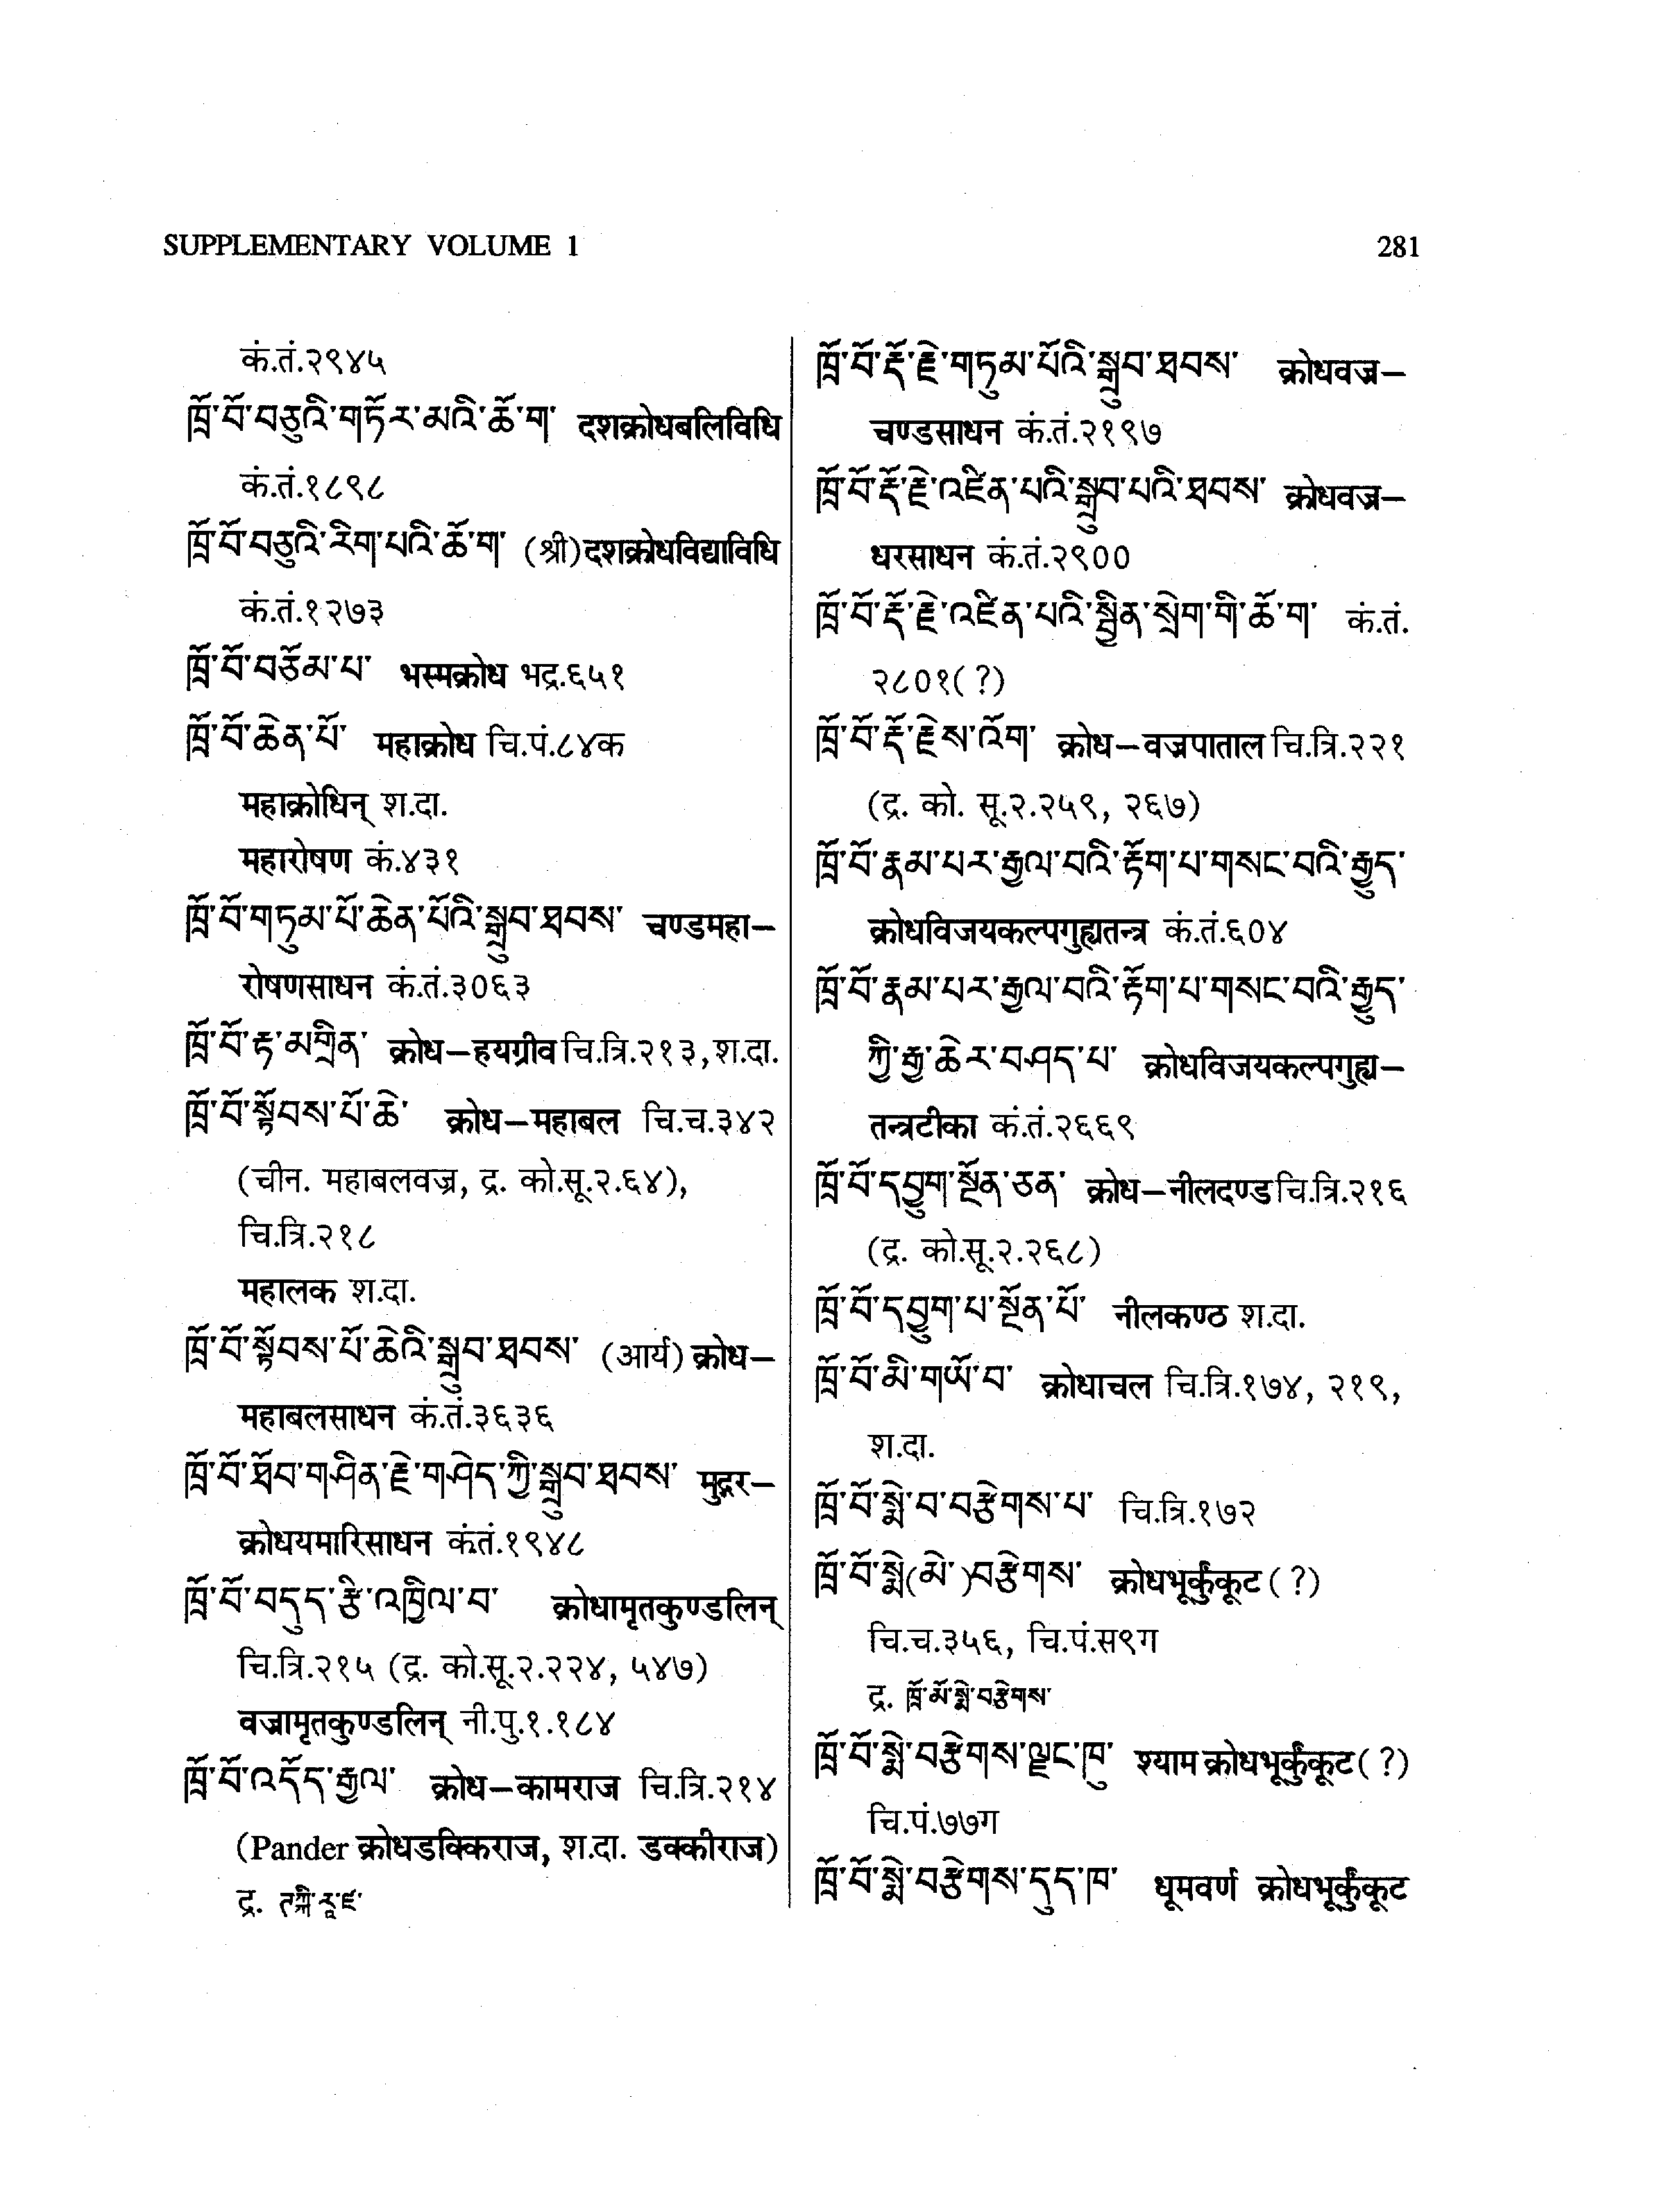 SUPPLEMENTARY VOLUME 1 281
कं.तं.२९४५
ཁྲོ་བོ་བཅུའི་གཏོར་མའི་ཆོ་ག་ दशक्रोधबलिविधि
कं.तं.१८९८
ཁྲོ་བོ་བཅུའི་རིག་པའི་ཆོ་ག་ (श्री)दशक्रोधविद्याविधि
कं.तं.१२७३
ཁྲོ་བོ་བཅོམ་པ་ भस्मक्रोध भद्र.६५१
ཁྲོ་བོ་ཆེན་པོ་ महाक्रोध चि.पं.८४क
महाक्रोधिन् श.दा.
महारोषण कं.४३१
ཁྲོ་བོ་གཏུམ་པོ་ཆེན་པོའི་སྒྲུབ་ཐབས་ चण्डमहा–
रोषणसाधन कं.तं.३०६३
ཁྲོ་བོ་རྟ་མགྲིན་ क्रोध–हयग्रीव चि.त्रि.२१३, श.दा.
ཁྲོ་བོ་སྟོབས་པོ་ཆེ་ क्रोध–महाबल चि.च.३४२
(चीन. महाबलवज्र, द्र. को.सू.२.६४),
चि.त्रि.२१८
महालक श.दा.
ཁྲོ་བོ་སྟོབས་པོ་ཆེའི་སྒྲུབ་ཐབས་ (आर्य) क्रोध–
महाबलसाधन कं.तं.३६३६
ཁྲོ་བོ་ཐོབ་གཤིན་རྗེ་གཤེད་ཀྱི་སྒྲུབ་ཐབས་ मुद्गर–
क्रोधयमारिसाधन कं.तं.१९४८
ཁྲོ་བོ་བདུད་རྩི་འཁྱིལ་བ་ क्रोधामृतकुण्डलिन्
चि.त्रि.२१५ (द्र. को.सू.२.२२४, ५४७)
वज्रामृतकुण्डलिन् नी.पु.१.१८४
ཁྲོ་བོ་འདོད་རྒྱལ་ क्रोध–कामराज चि.त्रि.२१४
(Pander क्रोधडक्किराज, श.दा. डक्कीराज)
द्र. ཊཀྐི་རཱ་ཛ་
ཁྲོ་བོ་རྡོ་རྗེ་གཏུམ་པོའི་སྒྲུབ་ཐབས་ क्रोधवज्र–
चण्डसाधन कं.तं.२१९७
ཁྲོ་བོ་རྡོ་རྗེ་འཛིན་པའི་སྒྲུབ་པའི་ཐབས་ क्रोधवज्र–
धरसाधन कं.तं.२९००
ཁྲོ་བོ་རྡོ་རྗེ་འཛིན་པའི་སྦྱིན་སྲེག་གི་ཆོ་ག་ कं.तं.
२८०१(?)
ཁྲོ་བོ་རྡོ་རྗེ་ས་འོག་ क्रोध–वज्रपाताल चि.त्रि.२२१
(द्र. को. सू.२.२५९, २६७)
ཁྲོ་བོ་རྣམ་པར་རྒྱལ་བའི་རྟོག་པ་གསང་བའི་རྒྱུད་
क्रोधविजयकल्पगुह्यतन्त्र कं.तं.६०४
ཁྲོ་བོ་རྣམ་པར་རྒྱལ་བའི་རྟོག་པ་གསང་བའི་རྒྱུད་
ཀྱི་རྒྱ་ཆེར་བཤད་པ་ क्रोधविजयकल्पगुह्य–
तन्त्रटीका कं.तं.२६६९
ཁྲོ་བོ་དབྱུག་སྔོན་ཅན་ क्रोध–नीलदण्ड चि.त्रि.२१६
(द्र. को.सू.२.२६८)
ཁྲོ་བོ་དབྱུག་པ་སྔོན་པོ་ नीलकण्ठ श.दा.
ཁྲོ་བོ་མི་གཡོ་བ་ क्रोधाचल चि.त्रि.१७४, २१९,
श.दा.
ཁྲོ་བོ་སྨེ་བ་བརྩེགས་པ་ चि.त्रि.१७२
ཁྲོ་བོ་སྨེ(མེ་)བརྩེགས་ क्रोधभूर्कुंकूट (?)
चि.च.३५६, चि.पं.स९ग
द्र. ཁྲོ་མོ་སྨེ་བརྩེགས་
ཁྲོ་བོ་སྨེ་བརྩེགས་ལྗང་ཁུ་ श्याम क्रोधभूर्कुंकूट (?)
चि.पं.७७ग
ཁྲོ་བོ་སྨེ་བརྩེགས་དུད་ཁ་ धूमवर्ण क्रोधभूर्कुंकूट